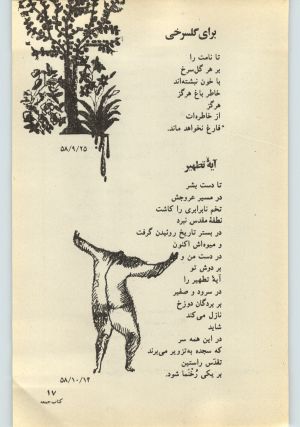 برای گلسرخی
تا نامت را
بر هر گل‌سرخ
با خون نبشته‌اند
خاطر باغ هرگز
هرگز
از خاطرهات
فارغ نخواهد ماند.
۵۸/۹/۲۵
آیهٔ تطهیر
تا دست بشر
در مسیر عروجش
تخم نابرابری را کاشت
نطفهٔ مقدس نبرد
در بستر تاریخ روئیدن گرفت
و میوه‌اش اکنون
در دست من و
بر دوش تو
آیهٔ تطهیر را
در سرود و صفیر
بر بردگان دوزخ
نازل می‌کند
شاید
در این همه سر
که سجده به‌تزویر می‌برند
تقدس راستین
بر یکی رُخنما شود.
۵۸/۱۰/۱۲
۱۷
کتاب جمعه